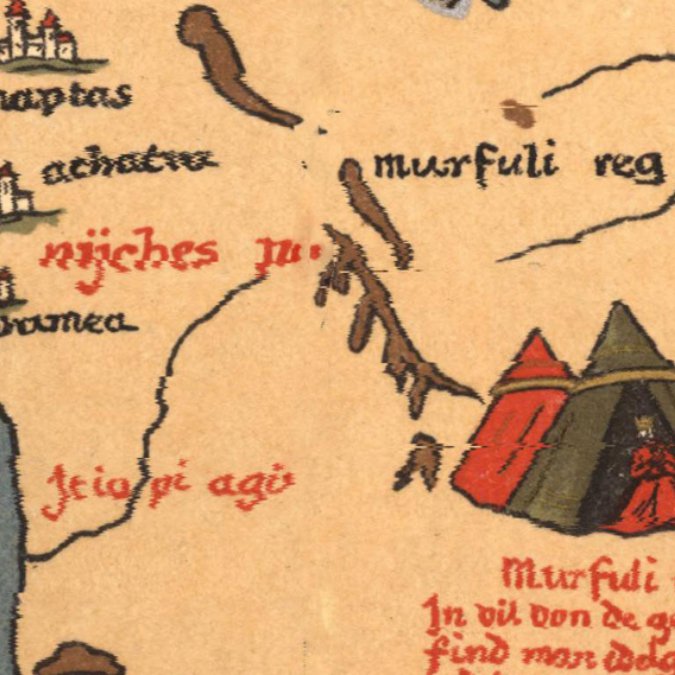 naptas
achatne
murfuli reg
nijches m.
bamea
Jtio pi agi
Murfuli
In vil von de ge
find man